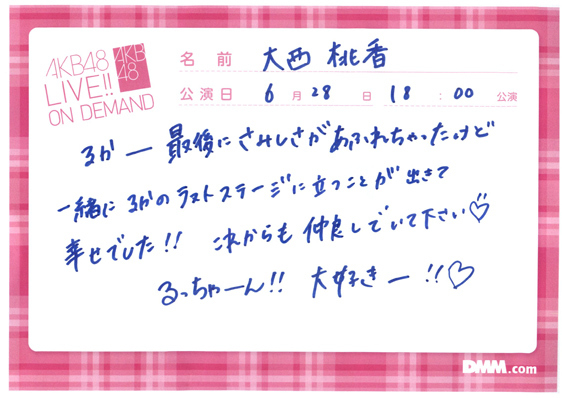 AKB48 AKB48
LIVE!!
ON DEMAND
名前 大西 桃香
公演日 6月28日 18:00公演
るかー 最後にさみしさがあふれちゃったけど
一緒に るかの ラストステージに立つことが出きて
幸せでした!! これからも 仲良しでいて下さい♡
るっちゃーん!! 大好きー!!♡
DMM.com